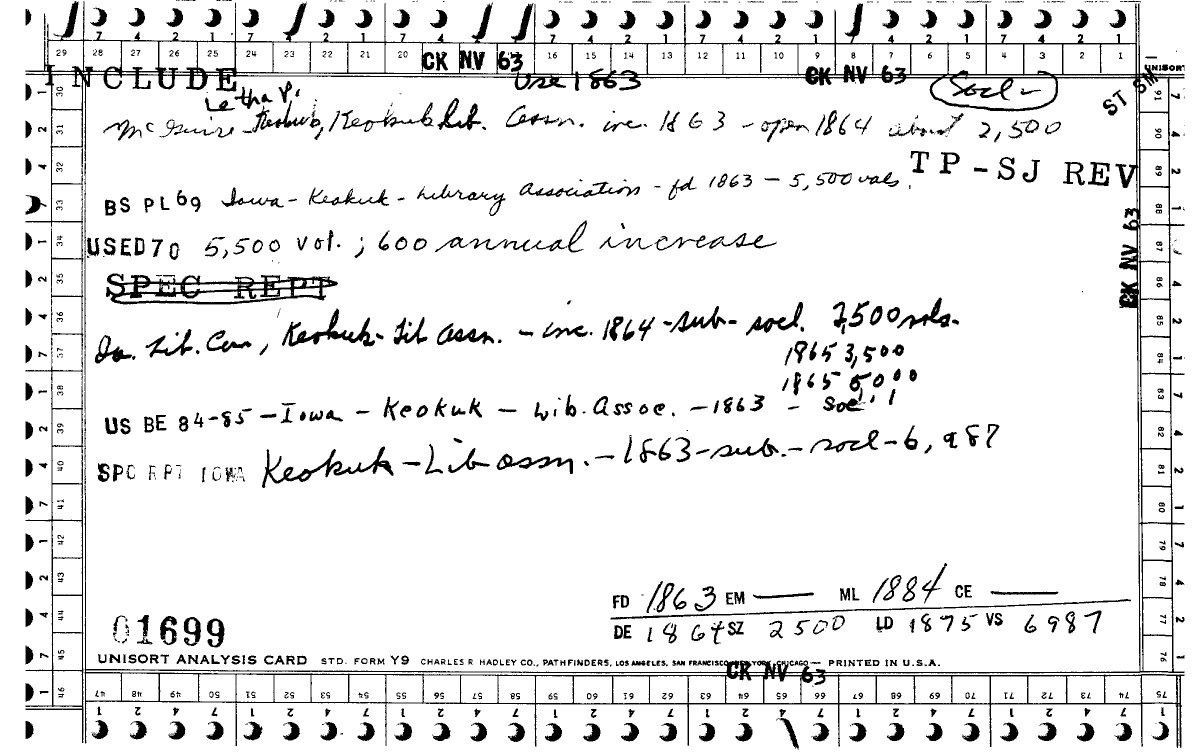 7 4 2 1 7 4 2 1 7 4 2 1 7 4 2 1 7 4 2 1 7 4 2 1 7 4 2 1
29 28 27 26 25 24 23 22 21 20 CK NV 63 16 15 14 13 12 11 10 9 8 7 6 5 4 3 2 1
UNISORT
INCLUDE Use 1863 CK NV 63 Socl-
Letha P. ST SM
McGuire Keokuk, Keokuk Lib. Assn. inc. 1863 - open 1864 about 2,500
TP-SJ REV
BS PL 69 Iowa - Keokuk - Library Association - fd 1863 - 5,500 vols.
USED 70 5,500 vol. ; 600 annual increase
CK NV 63
SPEC REPT
Ia. Lib. Com, Keokuk - Lib Assn. - inc. 1864 - sub - socl. 2,500 vols.
1865 3,500
1865 5,000
US BE 84-85 - Iowa - Keokuk - Lib. Assoc. - 1863 - Soc'l
SPC RPT IOWA Keokuk - Lib assn. - 1863 - sub. - socl - 6,987
FD 1863 EM — ML 1884 CE —
DE 1864 SZ 2500 LD 1875 VS 6987
01699
UNISORT ANALYSIS CARD STD. FORM Y9 CHARLES R HADLEY CO., PATHFINDERS, LOS ANGELES, SAN FRANCISCO, NEW YORK, CHICAGO — PRINTED IN U.S.A.
CK NV 63
46 47 48 49 50 51 52 53 54 55 56 57 58 59 60 61 62 63 64 65 66 67 68 69 70 71 72 73 74 75
1 2 4 7 1 2 4 7 1 2 4 7 1 2 4 7 1 2 4 7 1 2 4 7 1 2 4 7 1